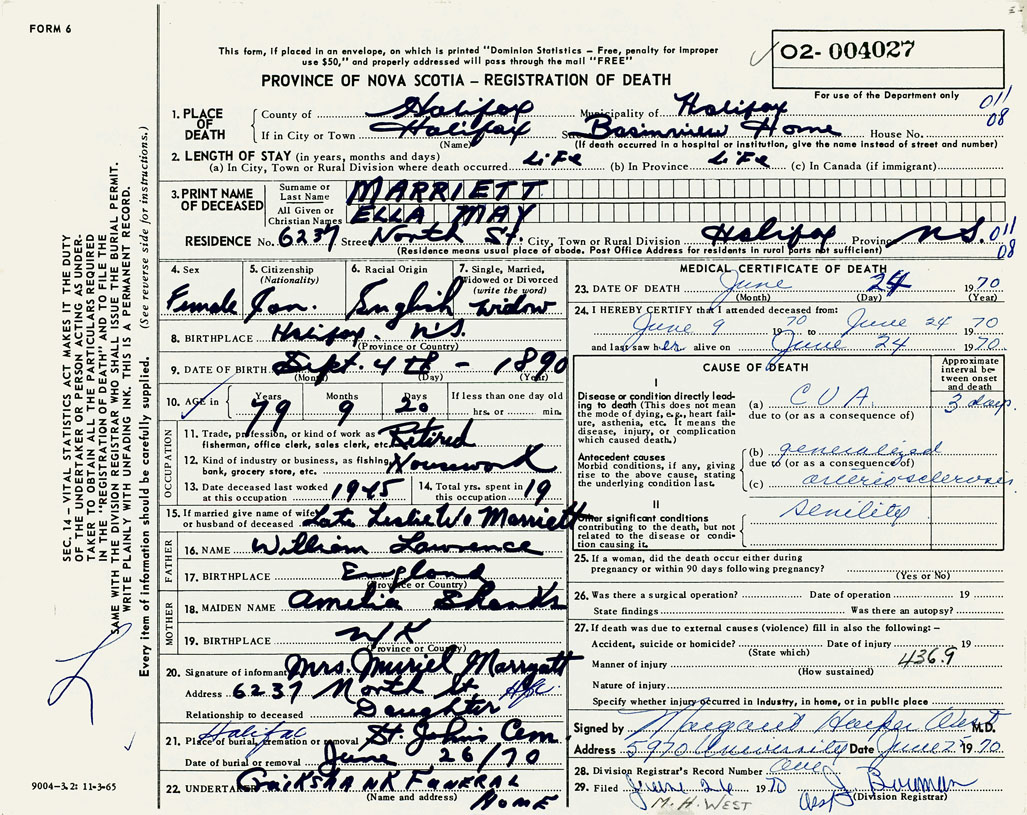 FORM 6
This form, if placed in an envelope, on which is printed "Dominion Statistics – Free, penalty for improper
use $50," and properly addressed will pass through the mail "FREE"
PROVINCE OF NOVA SCOTIA – REGISTRATION OF DEATH
02- 004027
For use of the Department only
011
08
1. PLACE OF DEATH
County of Halifax Municipality of Halifax
If in City or Town Halifax St. Basinview Home House No.
(Name) (If death occurred in a hospital or institution, give the name instead of street and number)
2. LENGTH OF STAY (in years, months and days)
(a) In City, Town or Rural Division where death occurred LiFe (b) In Province LiFe (c) In Canada (if immigrant)
3. PRINT NAME OF DECEASED
Surname or Last Name MARRIETT
All Given or Christian Names ELLA MAY
RESIDENCE No. 6237 Street North St. City, Town or Rural Division Halifax Province N.S.
(Residence means usual place of abode. Post Office Address for residents in rural parts not sufficient)
011
08
4. Sex 5. Citizenship (Nationality) 6. Racial Origin 7. Single, Married, Widowed or Divorced (write the word)
Female Can. English Widow
8. BIRTHPLACE Halifax. N.S.
(Province or Country)
9. DATE OF BIRTH Sept. 4th – 1890
(Month) (Day) (Year)
10. AGE in Years Months Days If less than one day old
79 9 20 hrs. or min.
OCCUPATION
11. Trade, profession, or kind of work as fisherman, office clerk, sales clerk, etc. Retired
12. Kind of industry or business, as fishing, bank, grocery store, etc. Housework
13. Date deceased last worked at this occupation 1945 14. Total yrs. spent in this occupation 19
15. If married give name of wife or husband of deceased Late Leslie W. Marriett
FATHER
16. NAME William Lawrence
17. BIRTHPLACE England
(Province or Country)
MOTHER
18. MAIDEN NAME Amelia Shanks
19. BIRTHPLACE N/K
(Province or Country)
20. Signature of informant Mrs. Muriel Marryatt
Address 6237 North St Hfx
Relationship to deceased Daughter
21. Place of burial, cremation or removal Halifax St. Johns Cem.
Date of burial or removal June 26/70
22. UNDERTAKER Cruikshank Funeral Home
(Name and address)
MEDICAL CERTIFICATE OF DEATH
23. DATE OF DEATH June 24 1970
(Month) (Day) (Year)
24. I HEREBY CERTIFY that I attended deceased from:
June 9 1970 to June 24 1970
and last saw her alive on June 24 1970
CAUSE OF DEATH
Approximate interval between onset and death
I
Disease or condition directly leading to death (This does not mean the mode of dying, e.g., heart failure, asthenia, etc. It means the disease, injury, or complication which caused death.)
(a) C V A. 3 days.
due to (or as a consequence of)
Antecedent causes
Morbid conditions, if any, giving rise to the above cause, stating the underlying condition last.
(b) generalized
due to (or as a consequence of)
(c) arteriosclerosis
II
Other significant conditions contributing to the death, but not related to the disease or condition causing it.
Senility
25. If a woman, did the death occur either during pregnancy or within 90 days following pregnancy?
(Yes or No)
26. Was there a surgical operation? Date of operation 19
State findings Was there an autopsy?
27. If death was due to external causes (violence) fill in also the following: –
Accident, suicide or homicide? Date of injury 19
(State which)
Manner of injury 436.9
(How sustained)
Nature of injury
Specify whether injury occurred in Industry, in home, or in public place
Signed by Margaret Harper West M.D.
Address 5970 University Date June 25 1970
28. Division Registrar's Record Number
29. Filed June 26 1970 J Bowman
(Division Registrar)
M. H. WEST
SEC. 14 – VITAL STATISTICS ACT MAKES IT THE DUTY
OF THE UNDERTAKER OR PERSON ACTING AS UNDER-
TAKER TO OBTAIN ALL THE PARTICULARS REQUIRED
IN THE "REGISTRATION OF DEATH" AND TO FILE THE
SAME WITH THE DIVISION REGISTRAR WHO SHALL ISSUE THE BURIAL PERMIT.
WRITE PLAINLY WITH UNFADING INK. THIS IS A PERMANENT RECORD.
Every item of information should be carefully supplied. (See reverse side for instructions.)
9004-3.2: 11-3-65